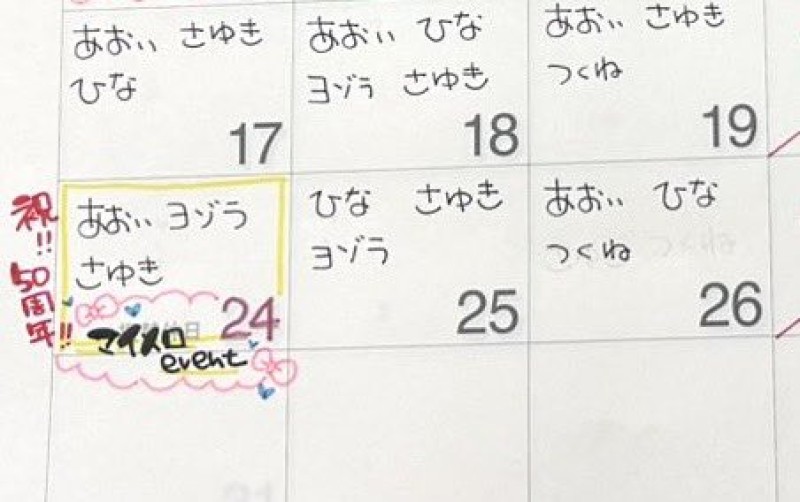 あおい さゆき
ひな
17
あおい ひな
ヨゾラ さゆき
18
あおい さゆき
つくね
19
祝!! 50周年!!
あおい ヨゾラ
さゆき
24
マイメロ
event
ひな さゆき
ヨゾラ
25
あおい ひな
つくね
26